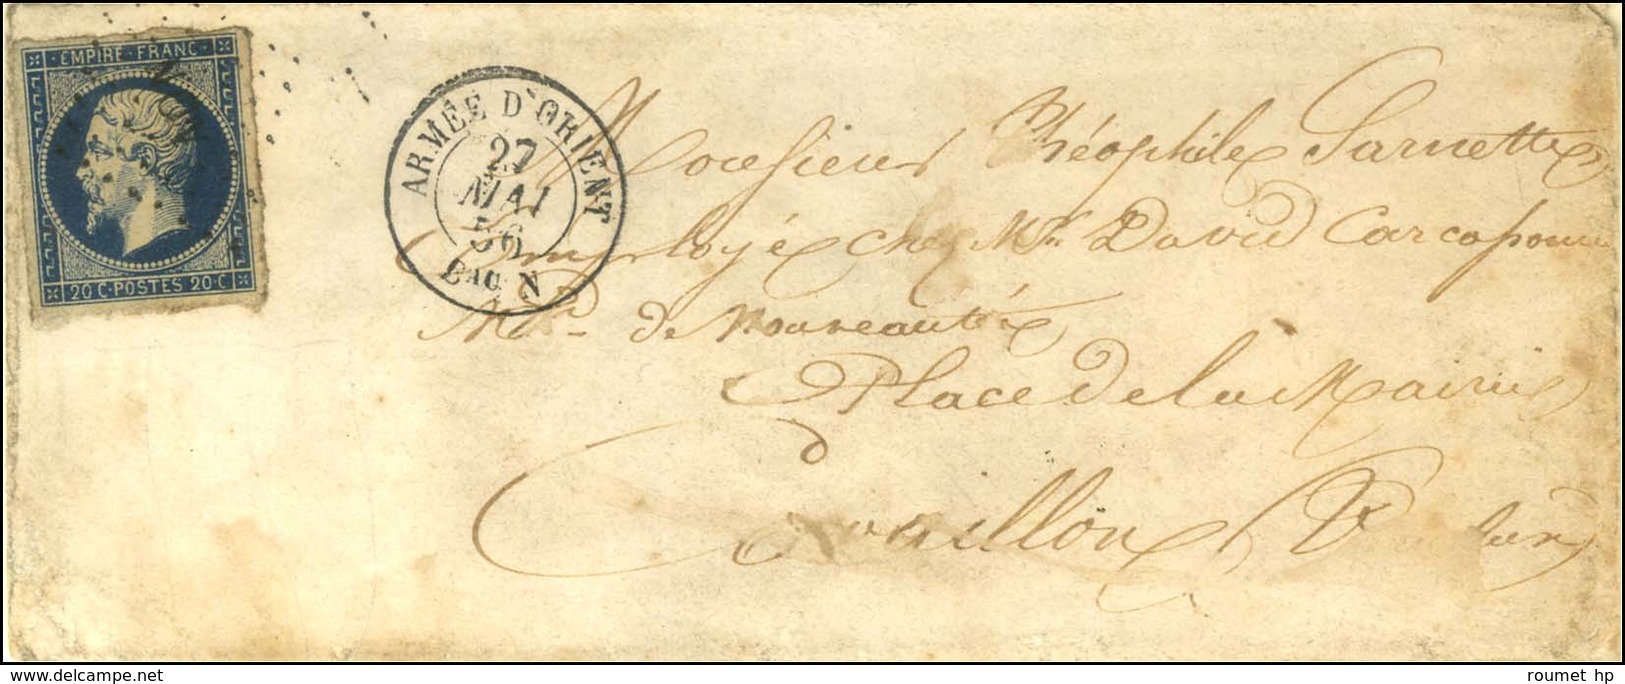 EMPIRE · FRANC ·
20 C · POSTES 20 · C
ARMÉE D'ORIENT
27
MAI
56
Bau N
Monsieur Théophile Sarnette
Employé chez Mr David
Md de Nouveautés
Place de la Mairie
Cavaillon
delcampe.net
roumet hp